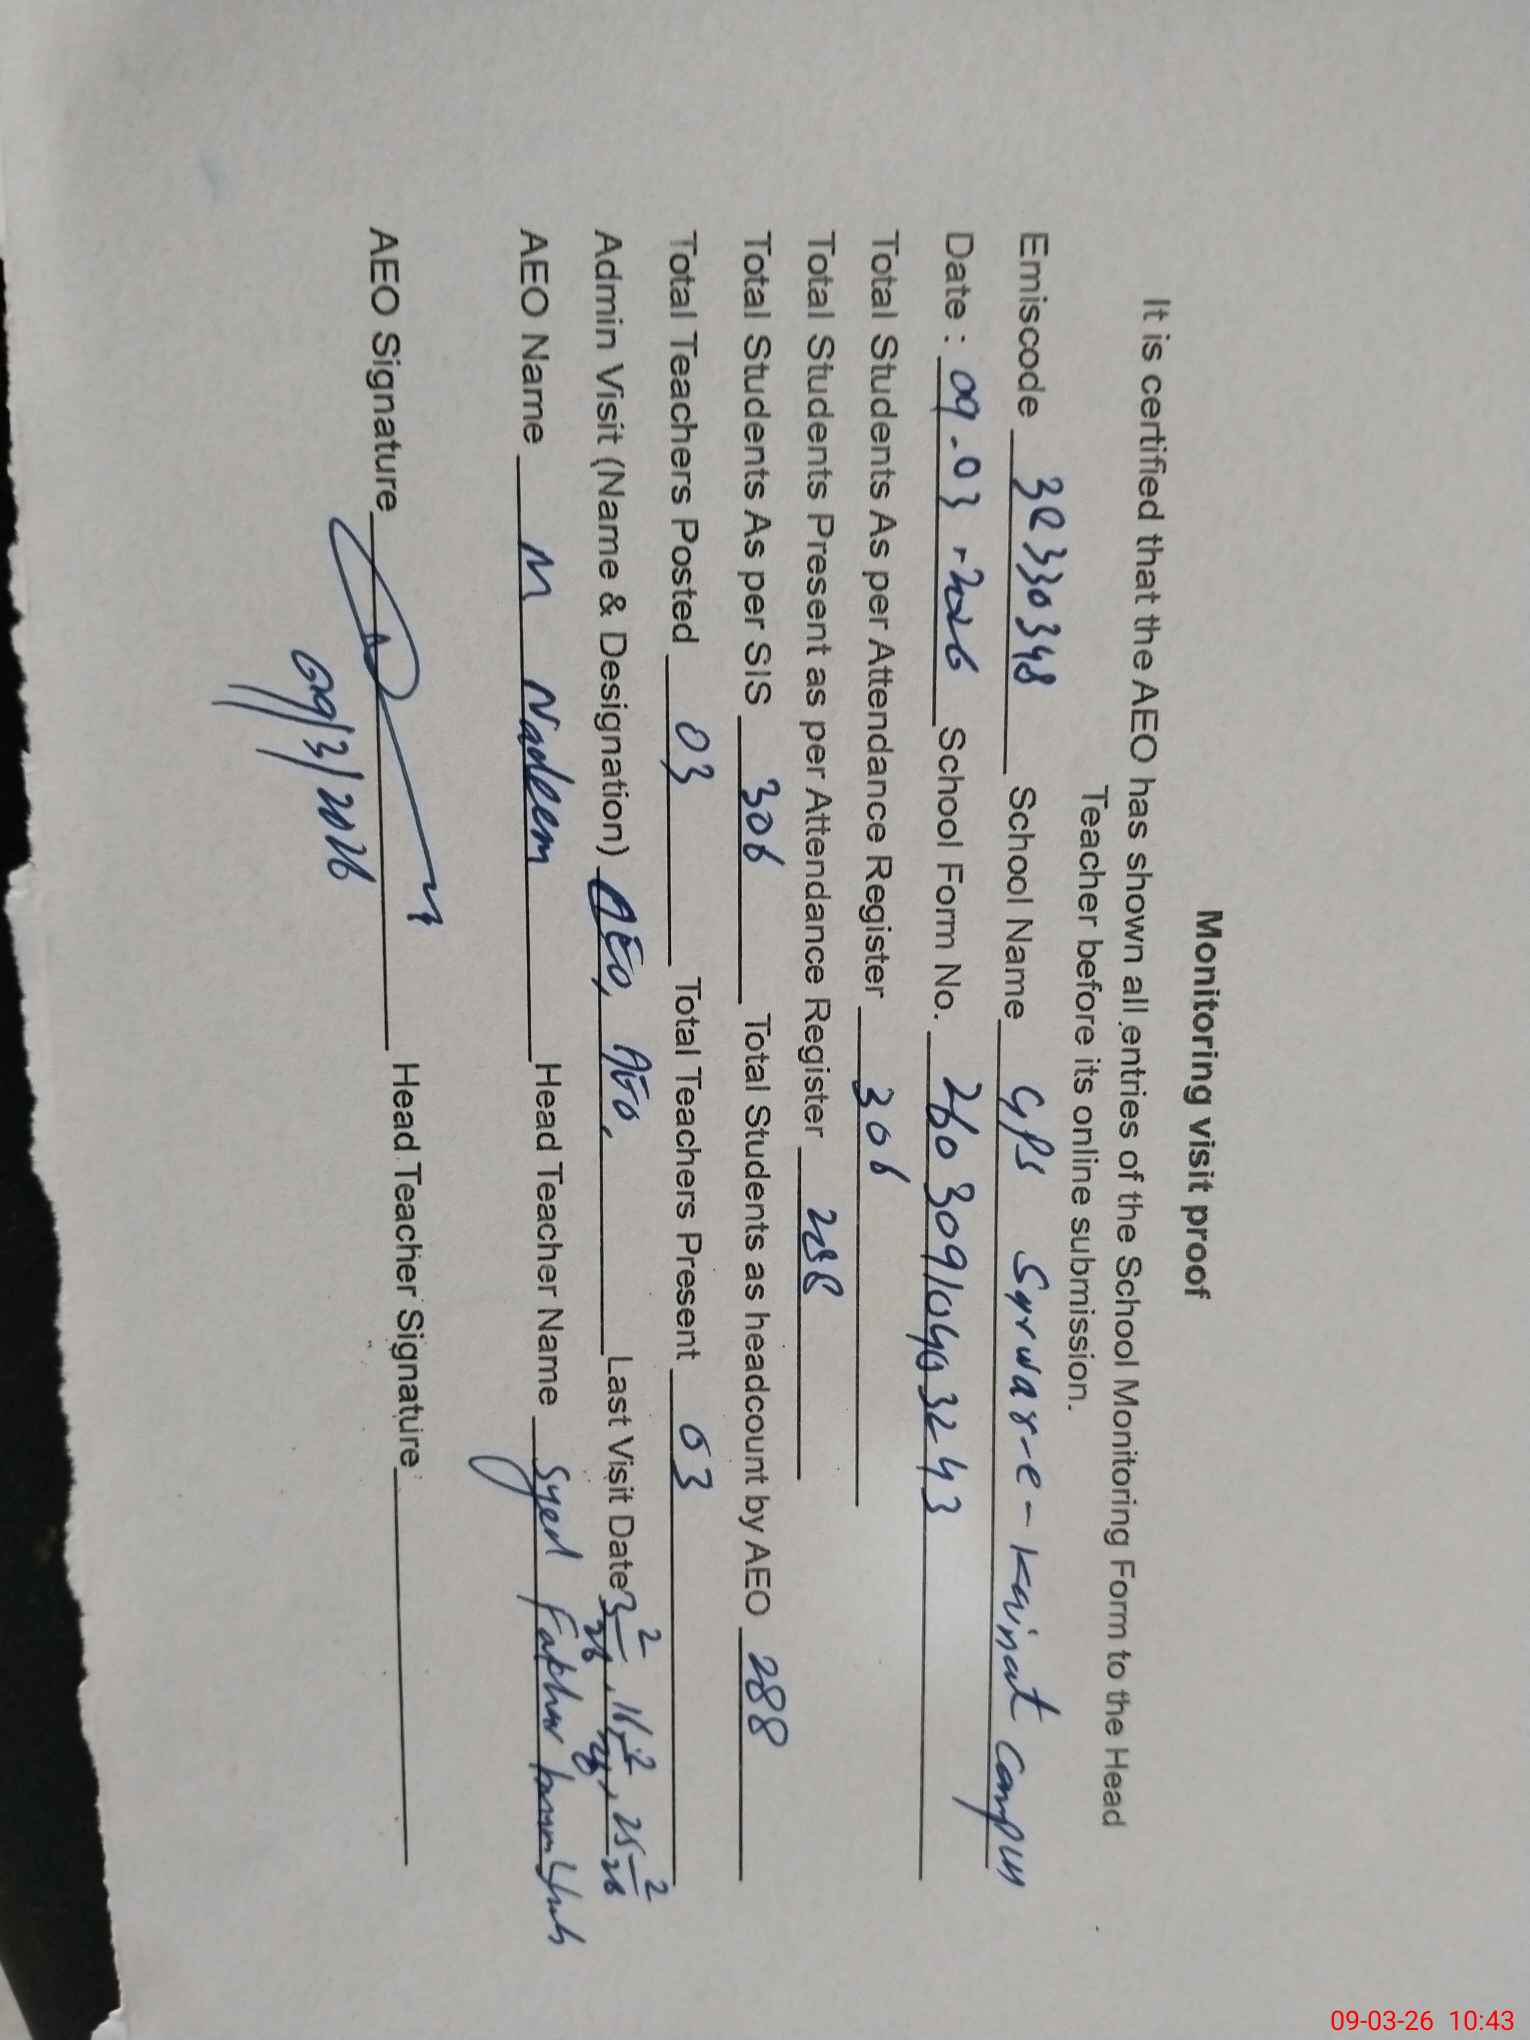 Monitoring visit proof
It is certified that the AEO has shown all entries of the School Monitoring Form to the Head
Teacher before its online submission.
Emiscode 32330348 School Name GPS Syrwar-e-Kainat campus
Date : 09-03-2026 School Form No. 2603091040 3243
Total Students As per Attendance Register 306
Total Students Present as per Attendance Register 288
Total Students As per SIS 306 Total Students as headcount by AEO 288
Total Teachers Posted 03 Total Teachers Present 03
Admin Visit (Name & Designation) AEO, AEO, Last Visit Date 3 2/26, 16 2/26, 25 2/26
AEO Name M Nadeem Head Teacher Name Syed Fakhar
AEO Signature Head Teacher Signature
09/3/2026
09-03-26 10:43